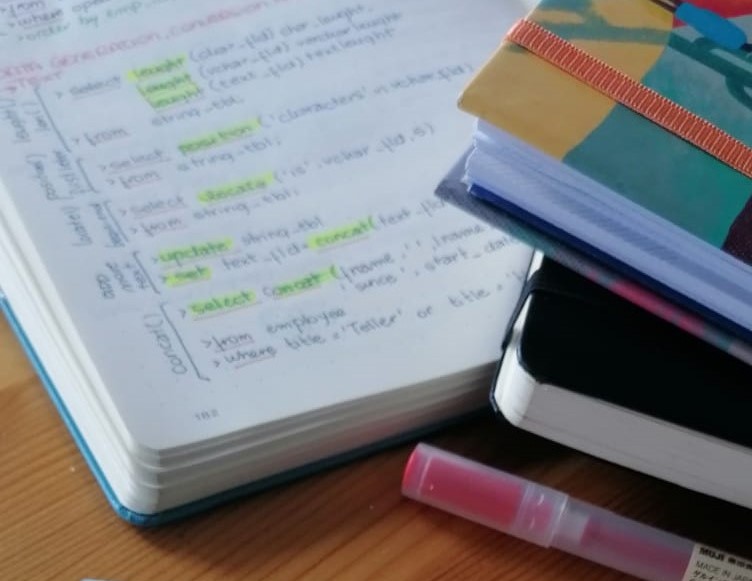 > from
> where
> order by emp
DATA GENERATION, CONVERSION
> TEXT
length()
> select lenght (char_fld) char_lenght,
lenght (varchar_fld) varchar_lenght
lenght (text_fld) text_lenght
> from string_tbl;
position()
> select position ('characters' in vchar_fld)
> from string_tbl;
locate()
> select locate ('is', vchar_fld, 5)
> from string_tbl;
> update string_tbl
> set text_fld = concat (text_fl
concat()
> select concat (fname, ' ', lname
' since ', start_date
> from employee
> where title = 'Teller' or title = '
182
MUJI
MADE IN